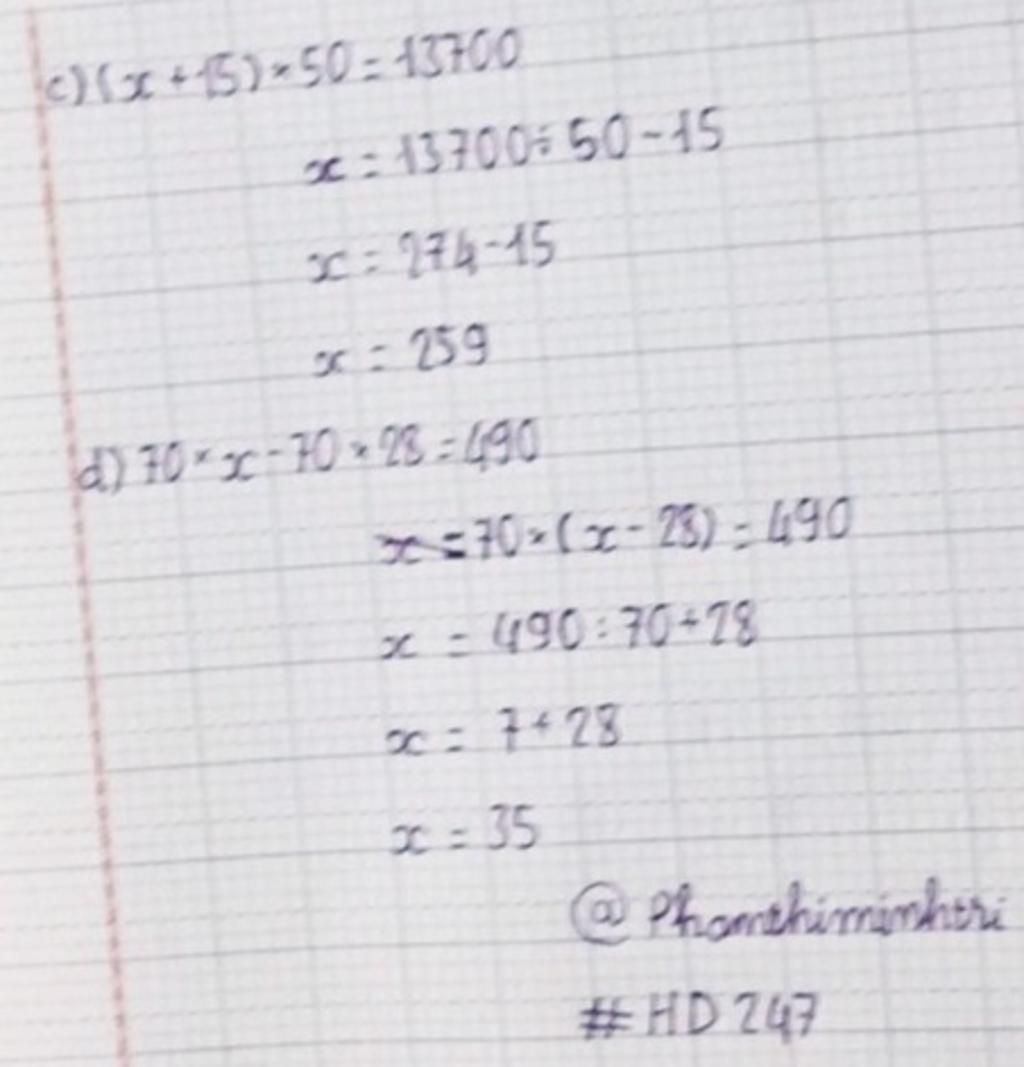 c) (x + 15) × 50 = 13700
x = 13700 : 50 - 15
x = 274 - 15
x = 259
d) 70 × x - 70 × 28 = 490
70 × (x - 28) = 490
x = 490 : 70 + 28
x = 7 + 28
x = 35
@ Phamthiminhtri
# HD 247